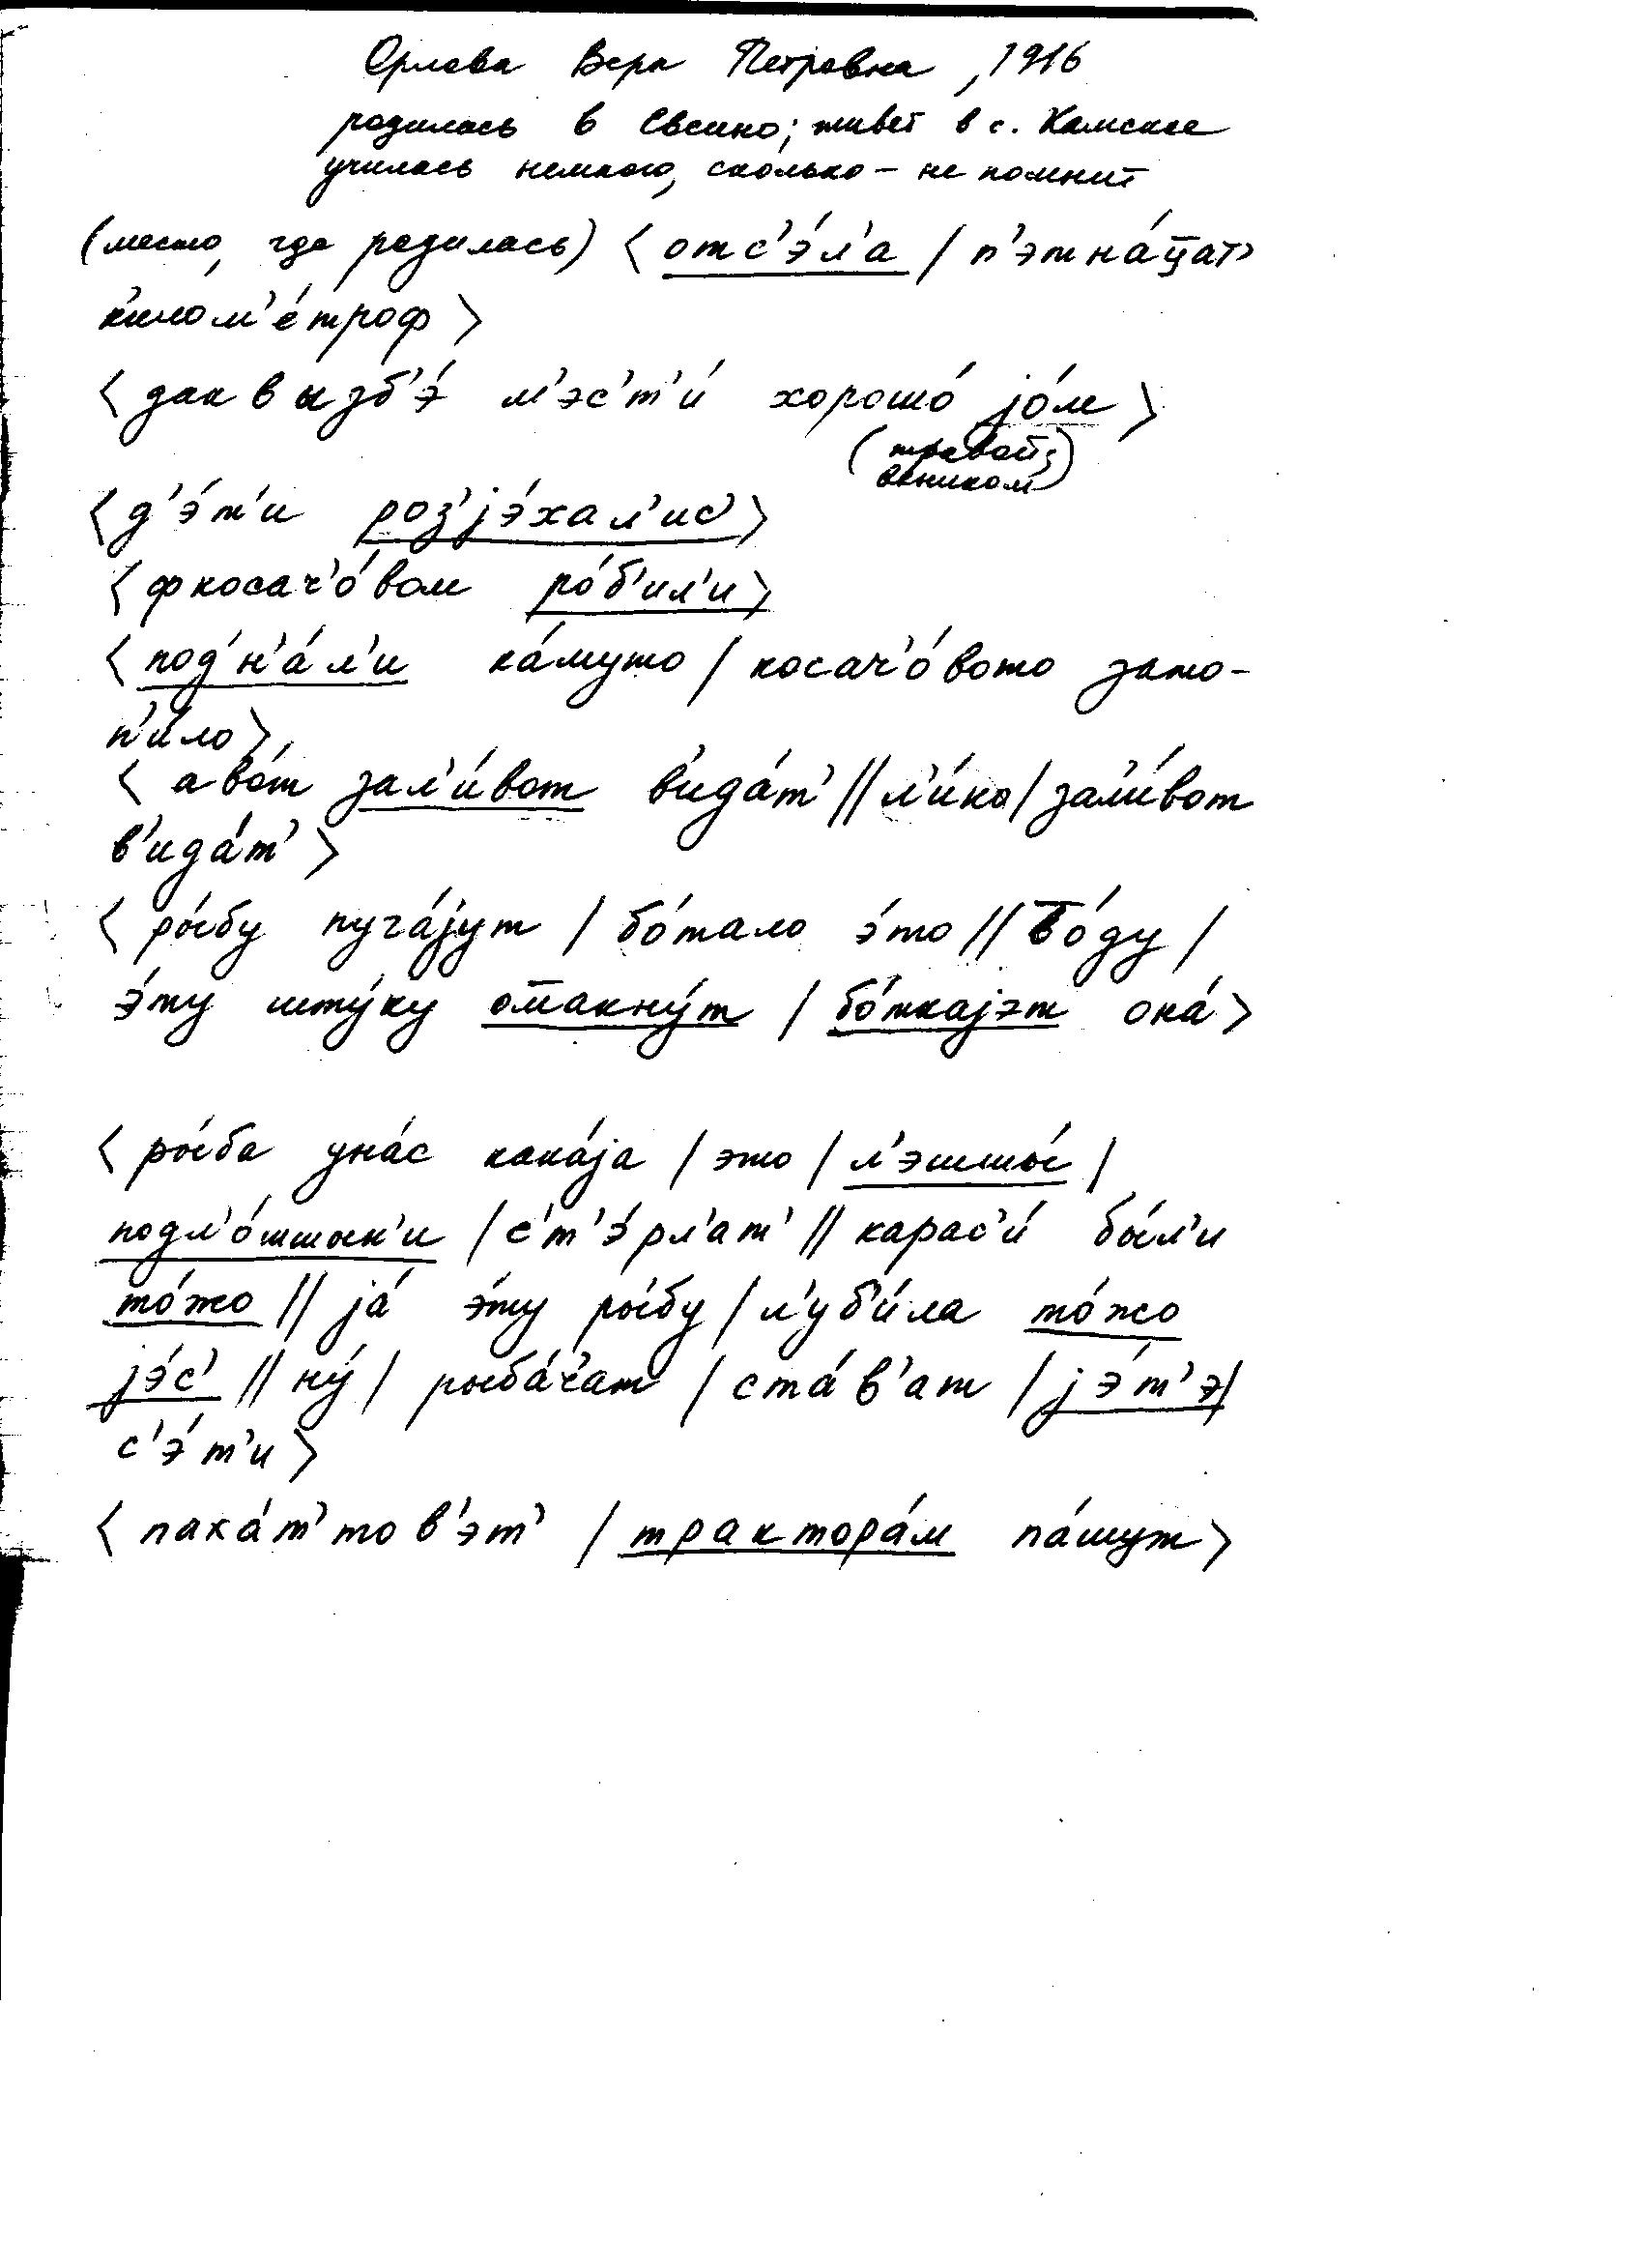 Орлова Вера Петровна, 1916
родилась в Евсино; живет в с. Камское
училась немного, сколько – не помнит
(место, где родилась) 〈 отс'э́л'а / п'этна́цат'
к'илом'е́троф 〉
〈 дак в ызб'э́ м'эс'т'и́ хорошо́ jо́м 〉
(травой;
веником)
〈 д'э́т'и роз'jэ́хал'ис' 〉
〈 фкосач'о́вом ро́б'ил'и 〉
〈 под'н'а́л'и ка́муто / косач'о́вото зато-
п'и́ло 〉,
〈 а во́т зал'и́вот в'ида́т' // л'и́ко / зал'и́вот
в'ида́т' 〉
〈 ры́бу пуга́jут / бо́тало э́то // во́ду /
э́ту шту́ку омакну́т / бо́ткаjэт она́ 〉
〈 ры́ба уна́с кака́jа / это / л'эшшы́ /
подл'о́шшык'и / с'т'э́рл'ат' // карас'и́ бы́л'и
то́жо // jа́ э́ту ры́бу / л'уб'и́ла то́жо
jэ́с' // ну́ / рыба́ч'ат / ста́в'ат / jэ́т'э /
с'э́т'и 〉
〈 паха́т' то в'эт' / трактора́м па́шут 〉